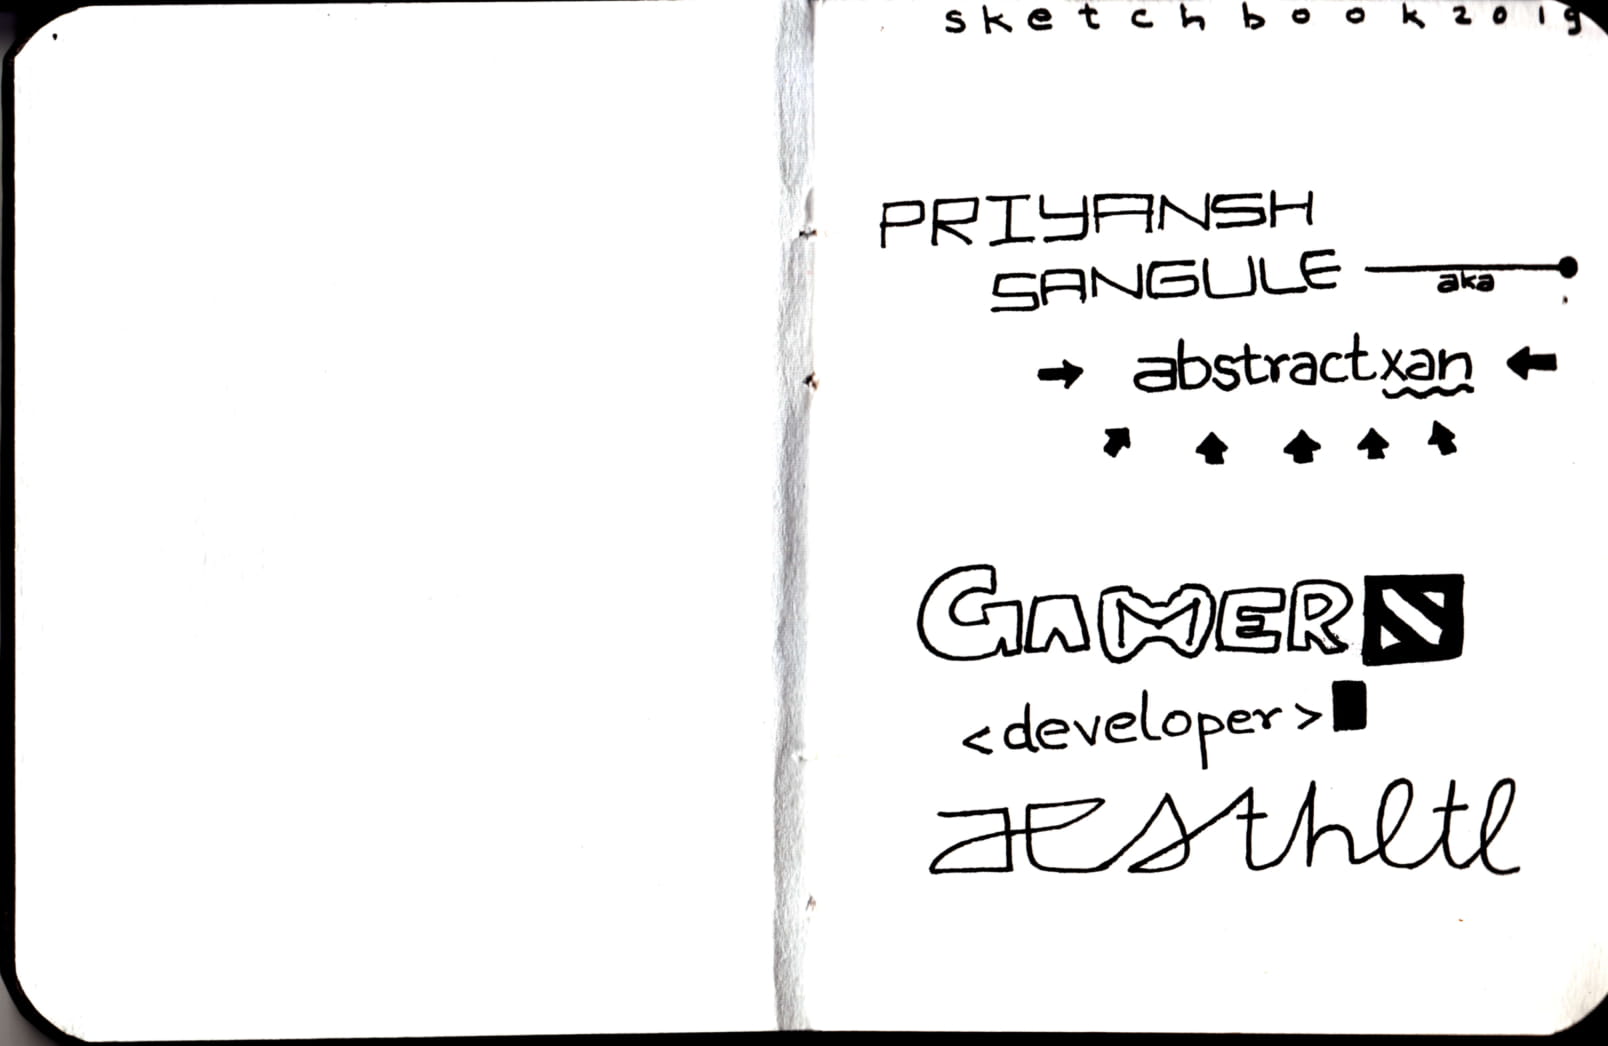 sketchbook2019
PRIYANSH
SANGULE
aka
abstractxan
GAMER
<developer>
æsthete